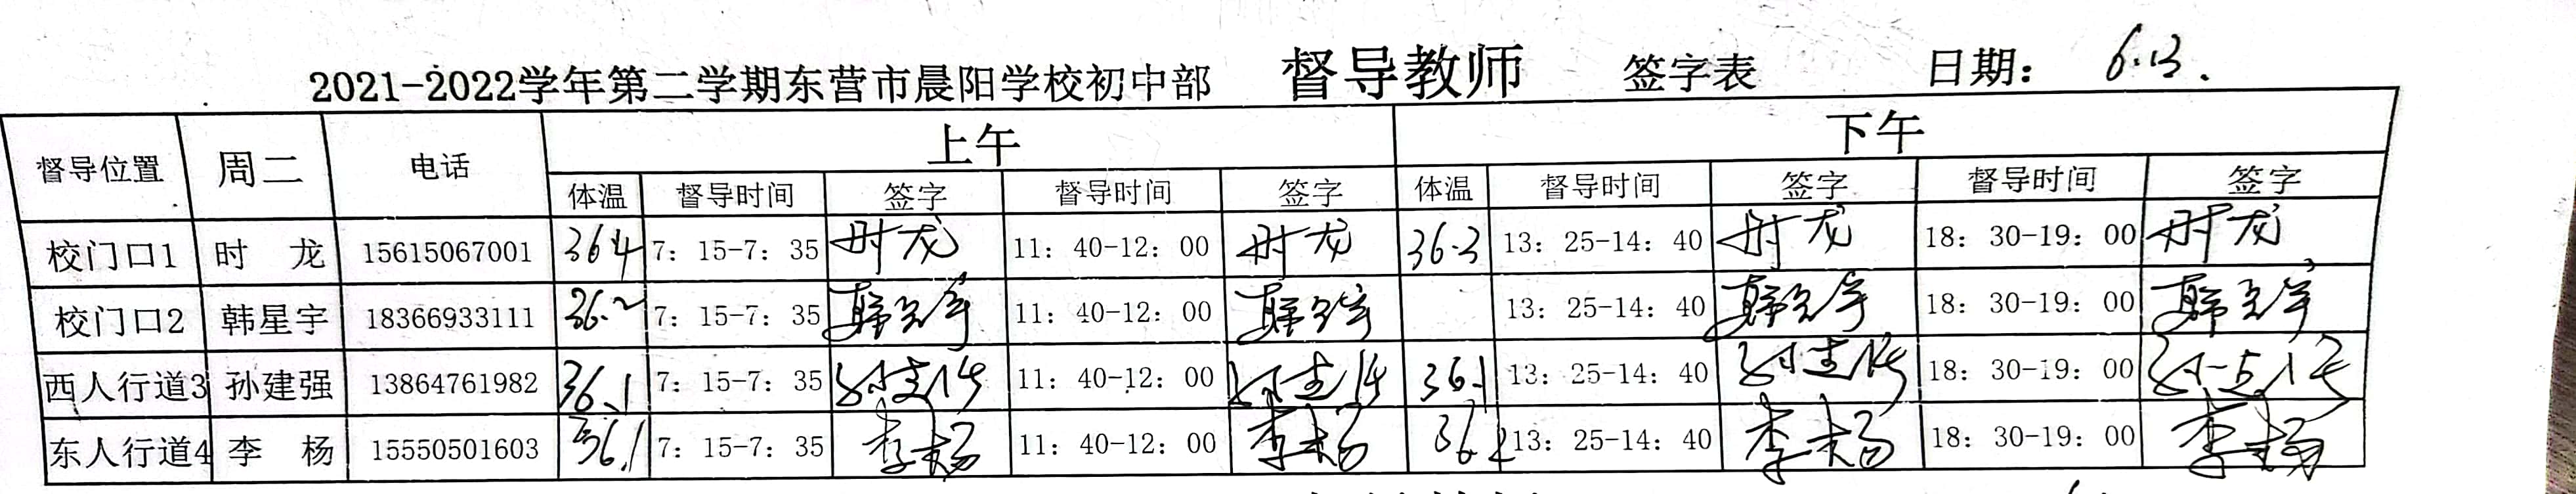 2021-2022学年第二学期东营市晨阳学校初中部 督导教师 签字表 日期: 6.13.
督导位置 周二 电话 上午 下午
体温 督导时间 签字 督导时间 签字 体温 督导时间 签字 督导时间 签字
校门口1 时 龙 15615067001 364 7: 15-7: 35 时龙 11: 40-12: 00 时龙 36.3 13: 25-14: 40 时龙 18: 30-19: 00 时龙
校门口2 韩星宇 18366933111 36.2 7: 15-7: 35 韩星宇 11: 40-12: 00 韩星宇 13: 25-14: 40 韩星宇 18: 30-19: 00 韩星宇
西人行道3 孙建强 13864761982 36.1 7: 15-7: 35 孙建强 11: 40-12: 00 孙建强 36.1 13: 25-14: 40 孙建强 18: 30-19: 00 孙建强
东人行道4 李 杨 15550501603 36.1 7: 15-7: 35 李杨 11: 40-12: 00 李杨 36.2 13: 25-14: 40 李杨 18: 30-19: 00 李杨